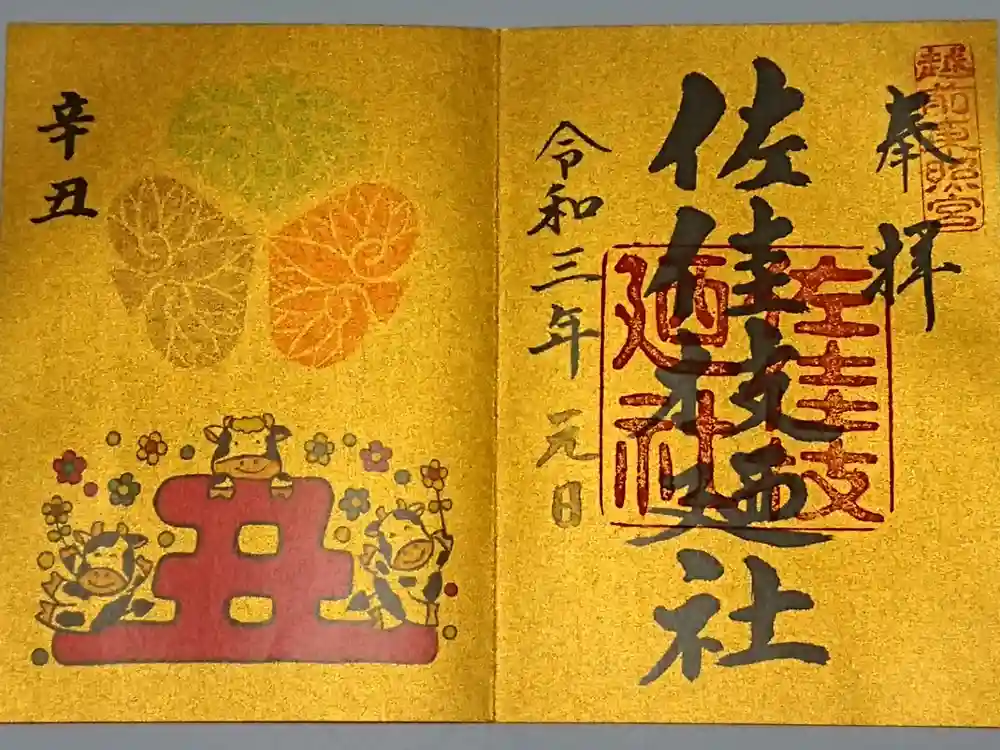 越前東照宮
奉拝
佐佳枝廼社
佐佳枝
廼社
令和三年 元日
辛丑
丑